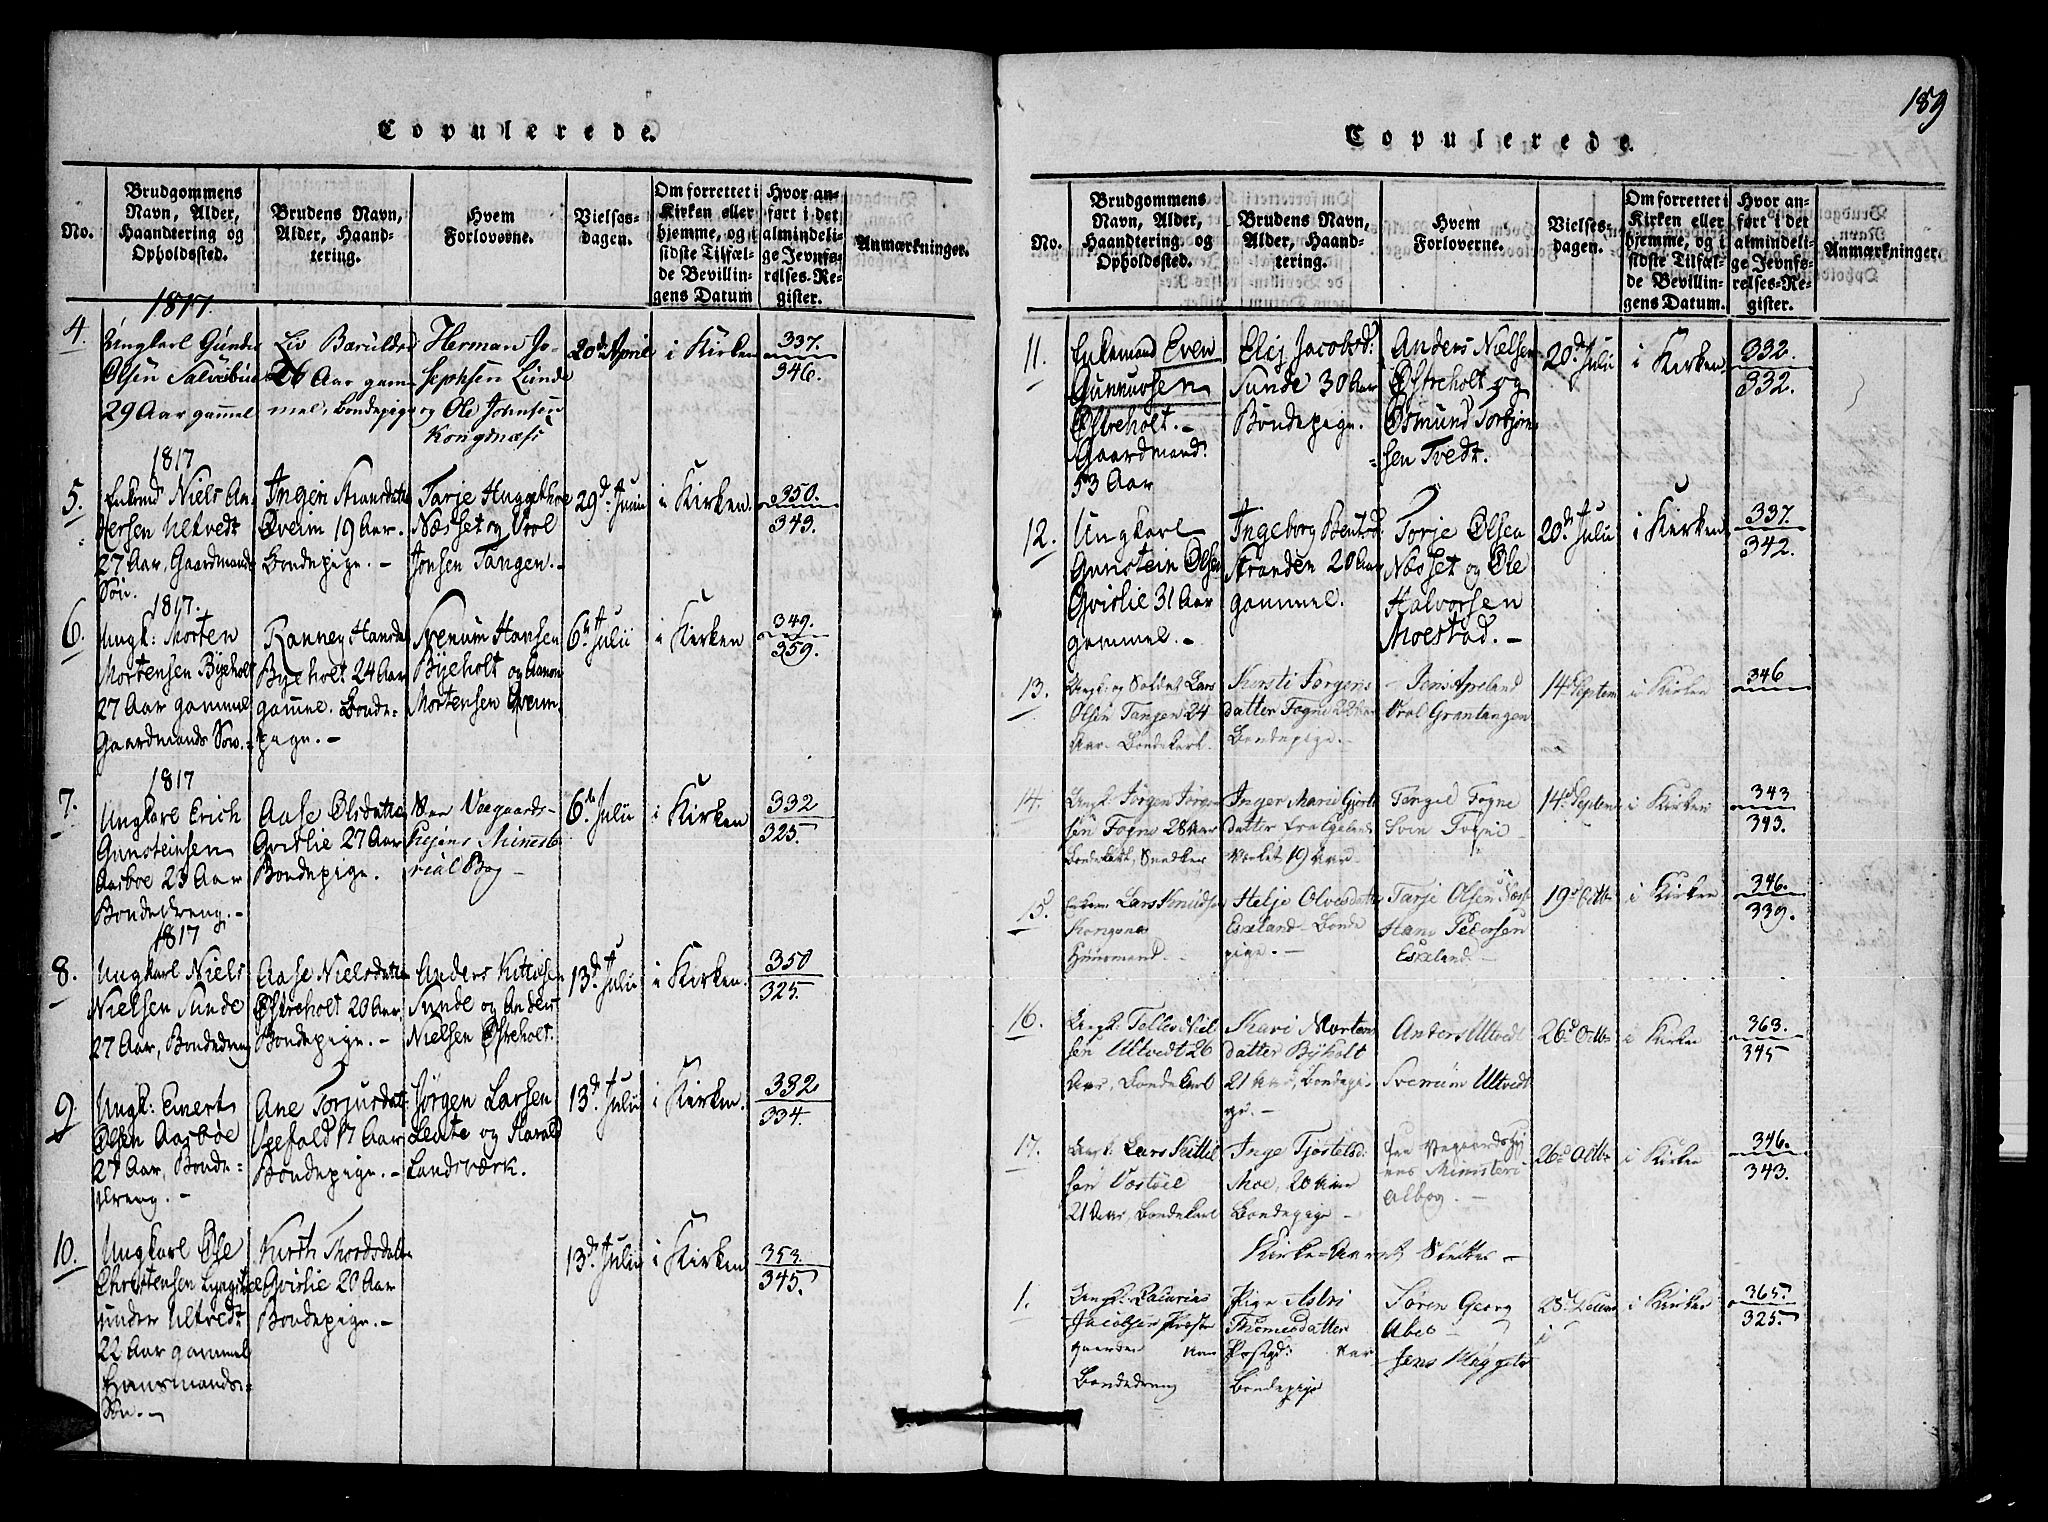 Copulerede.
No.
Brudgommens Navn, Alder, Haandtering og Opholdssted.
Brudens Navn, Alder, Haandtering.
Hvem Forloverne.
Vielsesdagen.
Om forrettet i Kirken eller hjemme, og i sidste Tilfælde Bevillingens Datum
Hvor anført i det almindelige Jevnførelses-Register.
Anmærkninger.
1817.
4.
Ungkarl Gunder
Olsen
29 Aar gammel
Liv
26 Aar gam-
mel, Bondepige
Herman Jo-
sephsen Lunde
og Ole Johnsen
20de April
i Kirken
337.
346.
1817
5.
Niels An-
dersen Ultvedt
27 Aar, Gaardmands
Søn.
Ingeri
Øveim 19 Aar.
Bondepige. -
Tarje
Næsset og Vrol
Jonsen Tangen. -
29d Junii
i Kirken.
350.
343.
1817.
6.
Ungk: Morten
Mortensen Byeholt
27 Aar gammel
Gaardmands Søn. -
Ranney Hansda
Byeholt 24 Aar
gamel. Bonde-
pige. -
Svenum Hansen
Byeholt og Aanon
Mortensen Øveim
6te Julii
i Kirken
349.
359.
1817
7.
Ungkarl Erich
Gunsteinsen
Aasboe 23 Aar
Bondedreng. -
Aase Olsdatte
Qvislie 27 Aar
Bondepige.
Veegaards-
hejens Minnste-
rial Bog -
6te Julii
i Kirken
332
325.
1817
8.
Ungkarl Niels
Nielsen Sunde
27 Aar, Bondedreng
Aase Nielsdatte
Østreholt 20 Aar
Bondepige. -
Anders Kittelsen
Sunde og Anders
Nielsen Østreholt.
13de Julii
i Kirken.
350
325.
9.
Ungk: Enert
Olsen Aasbøe
27 Aar, Bonde-
dreng. -
Ane Torjusdat
17 Aar
Bondepige. -
Jørgen Larsen
Lente og Harald
Landsværk.
13de Julii
i Kirken.
332
334.
10.
Ungkarl Ole
Christensen
under Ultvedt
22 Aar gammel
Huusmands-
Søn. -
Kirsti Thordsdatte
Qvislie 20 Aar
Bondepige. -
13de Julii
i Kirken
353.
345.
189
Copulerede.
No.
Brudgommens Navn, Alder, Haandtering og Opholdssted.
Brudens Navn, Alder, Haandtering.
Hvem Forloverne.
Vielsesdagen.
Om forrettet i Kirken eller hjemme, og i sidste Tilfælde Bevillingens Datum.
Hvor anført i det almindelige Jevnførelses-Register.
Anmærkninger.
11.
Enkemand Even
Gunnuvsen
Østreholt. -
Gaardmand.
53 Aar
Elej Jacobsd:
Sunde 30 Aar
Bondepige.
Anders Nielsen
Østreholt og
Osmund Torbjørn-
sen Tvedt.
20de Julii
i Kirken
332.
332.
12.
Ungkarl
Gunstein Olsen
Qvislie 31 Aar
gammel. -
Ingeborg Bentsd:
Stranden 20 Aar
gammel.
Torje Olsen
Næsset og Ole
Halvorsen
Moestad. -
20de Julii
i Kirken
337.
342.
13.
Ungk: og Soldat Lars
Olsen Tangen 24
Aar. Bondekarl.
Kirsti Jørgens
datter Fogne 22 Aar
Bondepige. -
Jens Apeland
Vrol Grantangen
14 Septem
i Kirken
346
14.
Ungk: Jørgen Jørgen
sen Fogne 28 Aar
Bondekarl, Snedker
Inger Marie
datter
Værket 19 Aar
Tergel Fogne
Sven Fogne -
14de Septem
i Kirken
343
343.
15.
Lars Knudsen
Kongsnæs
Huusmand.
Helje Olvesdatter
Eskeland Bonde
pige. -
Tarje Olsen Næss
Hans Pedersen
Eskeland.
19d Octbr
i Kirken
346.
339.
16.
Ungk: Tellev Niel
sen Ultvedt 26
Aar, Bondekarl
Kari Morten
datter Byholt
21 Aar, Bondepi-
ge. -
Anders Ultvedt
Svenum Ultvedt
26d Octbr
i Kirken
363.
345
17.
Ungk: Lars Kittel
sen Vostøel
21 Aar, Bondekarl
Inge Tjostelsd:
Moe, 20 Aar
Bondepige -
See Vegaardshej
ens Ministeri
albog. -
26d Octbr
i Kirken
346.
343.
Kirke-Aaret Sluttes -
1.
Ungk: Zacarias
Jacobsen Præste
gaarden Aar
Bondedreng
Pige Astri
Thomesdatter
Præstgd: Aar
Bondepige
Søren Georg
Abel -
Jens
28d
i Kirken
365.
325.